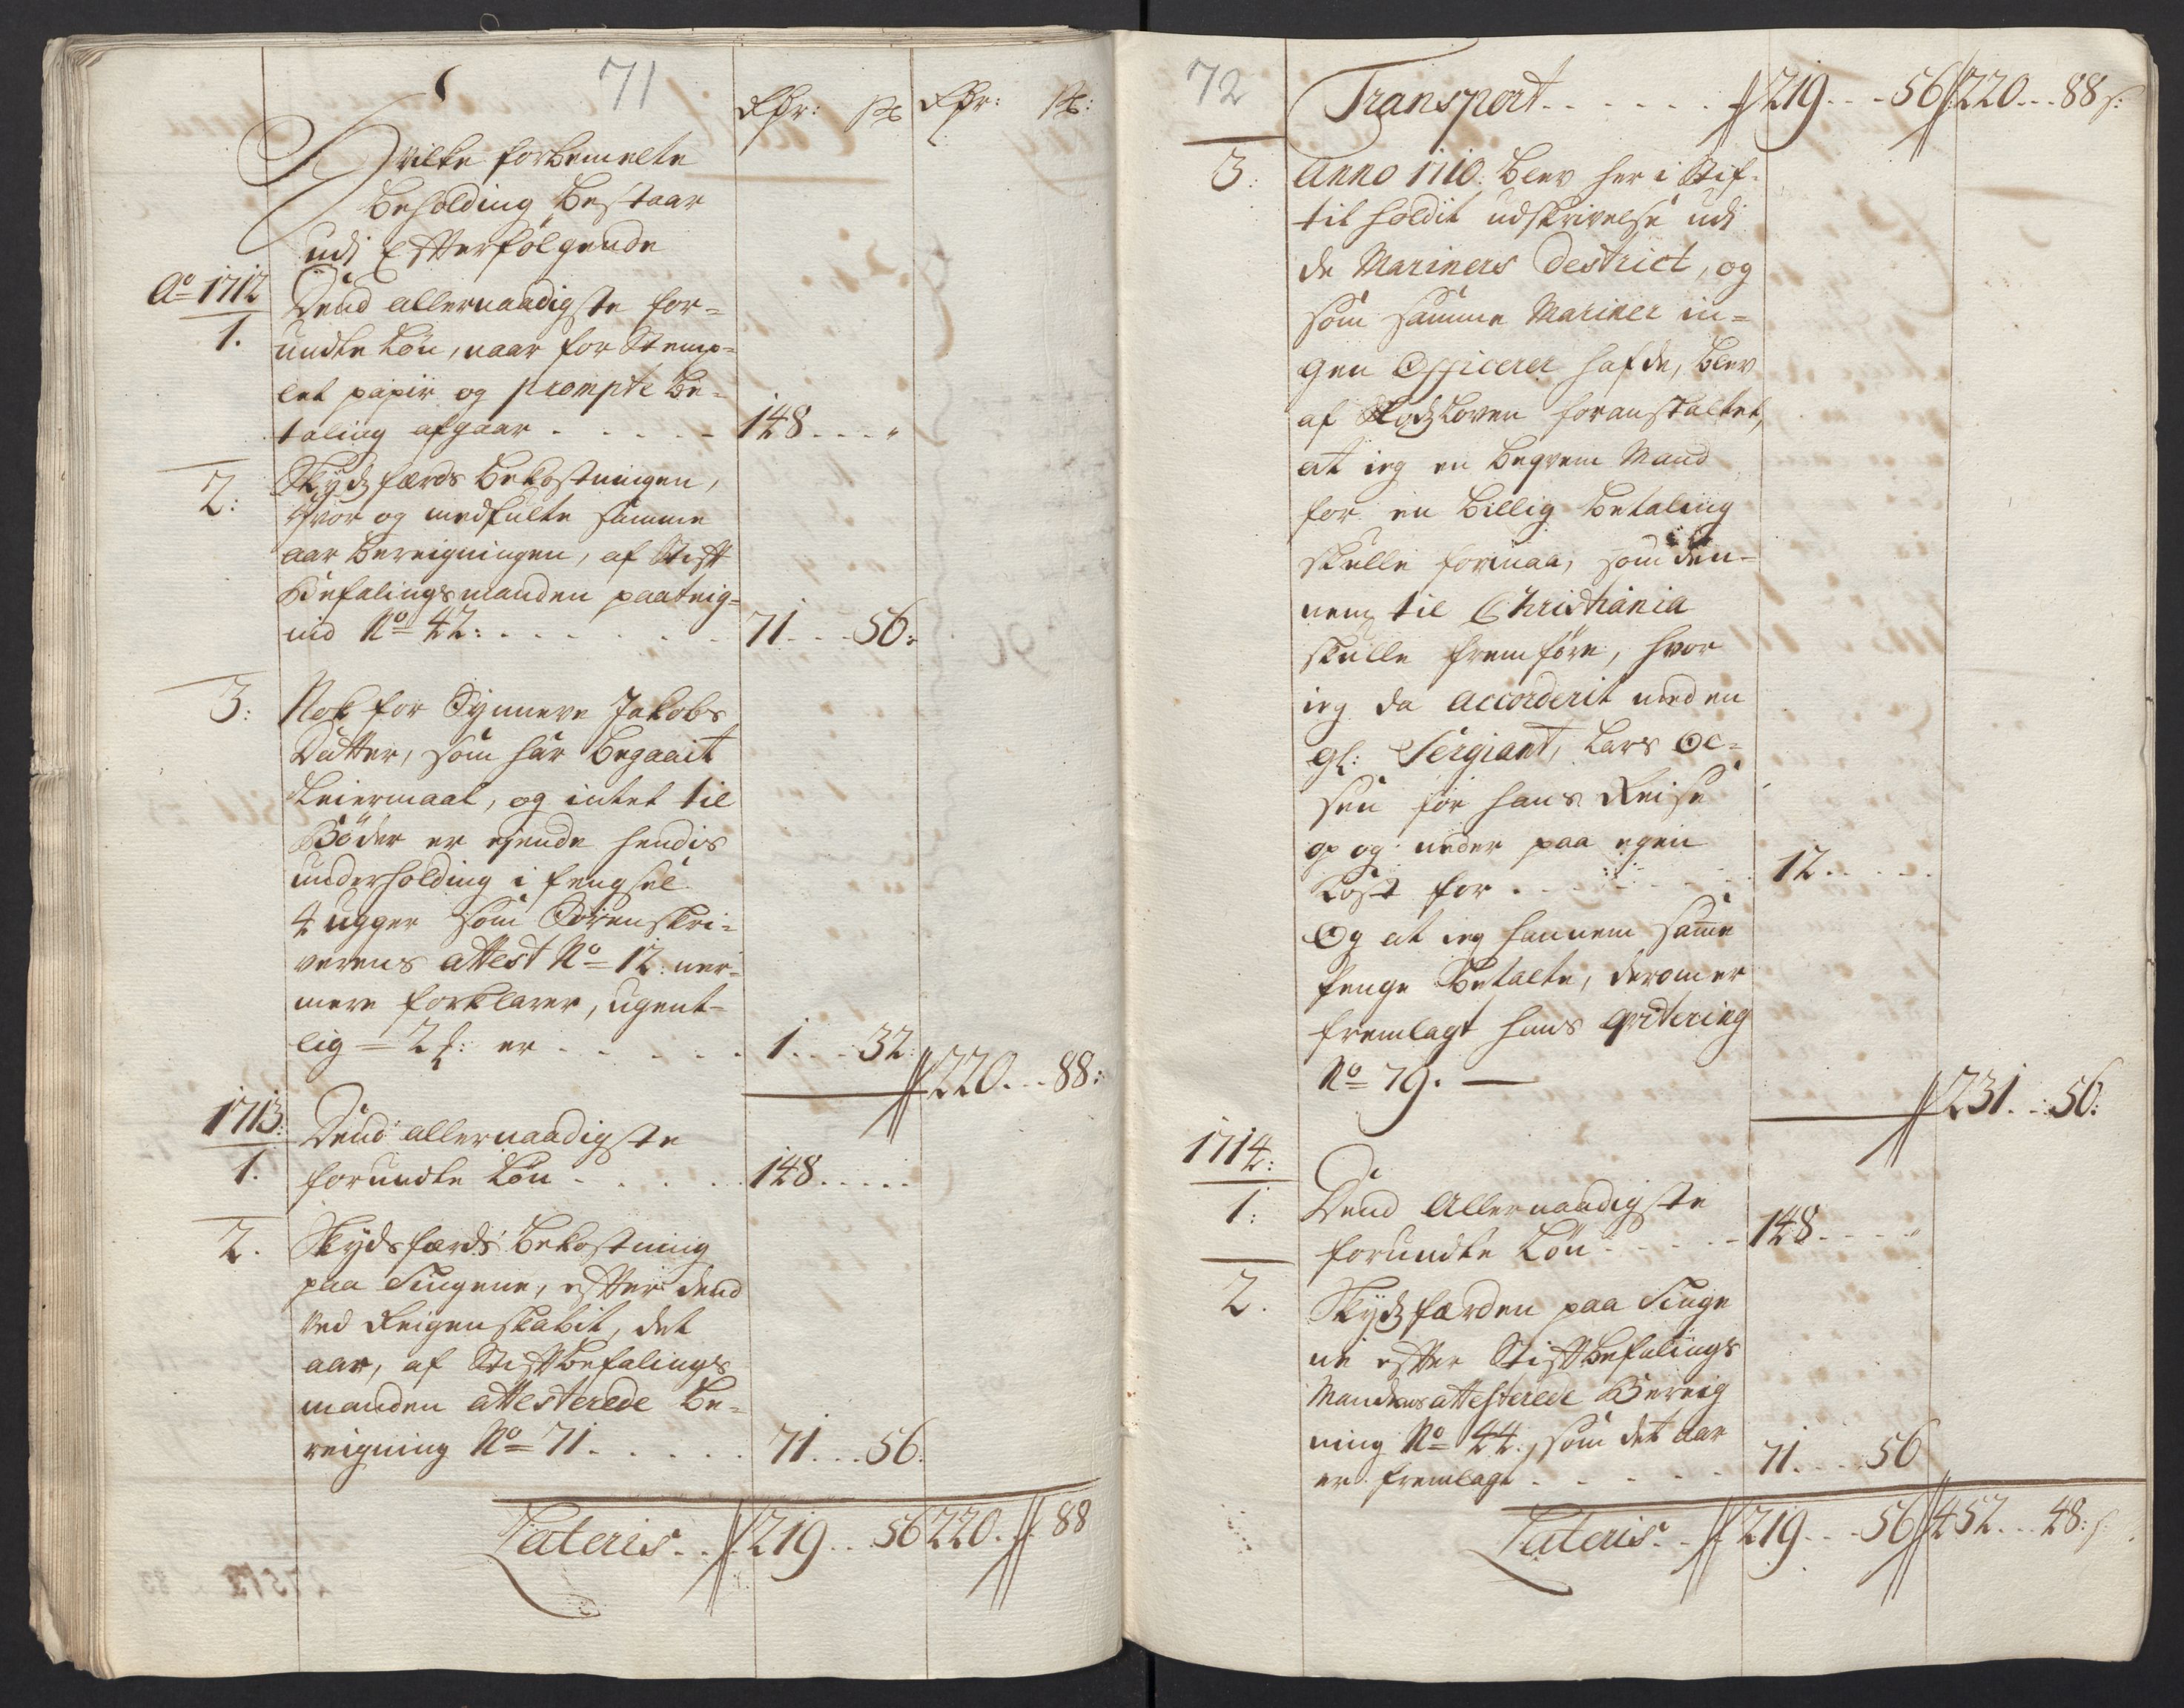 71
Rdr: s Rdr: s:
Hvilke forbemelte
Beholding Bestaar
udj Efterfølgende
Ao 1712
1. Dend allernaadigste for-
undte Løn, naar for Stemp-
let papir og prompte Be-
taling afgaar . . . . . 148 . . . "
2: Skydsfærds Bekostningen,
hvor og medfulte samme
aar Bereigningen, af Stift
Befalingsmanden paateig-
nid No 42: . . . . . 71 . . . 56:
3: Nok for Synneve Jakobs
Datter, som har begaait
Leiermaal, og intet til
Bøder er ejende hendis
underholding i fengsel
4 ugger som Sorenskri-
verens attest No 12: ner-
mere forklarer, ugent-
lig - 2 s: er . . . . . 1 . . . 32:
220 . . . 88:
1713:
1. Dend allernaadigste
forundte Løn . . . . . 148 . . . . .
2. Skydsfærds Bekostning
paa Tingene, efter dend
ved Reigenskabit, det
aar, af Stiftbefalings
manden attesterede Be-
reigning No 71. . . . . . 71 . . . 56:
Lateris . . 219 . . 56 220 . . 88
72
Transport . . . . . . 219 . . . 56 220 . . . 88 s:
3: Anno 1710: blev her i Stif-
tit holdit udskrivelse udj
de Mariners District, og
som samme Mariner in-
gen Officerer hafde, blev
af Slodsloven foranstaltet,
at ieg en beqvem Mand
for en billig betaling
skulle formaa, som den-
nem til Christiania
skulle fremføre, hvor
ieg da accorderit med en
gl: Sergiant, Lars Ol-
sen for hans Reise
op og neder paa egen
Kost for . . . . . . 12 . . . . .
Og at ieg hannem samme
penge betalte, derom er
fremlagt hans qvitering
No 79. —
231 . . 56:
1714:
1: Dend Allernaadigste
forundte Løn . . . . . 148 . . . . "
2. Skydsfærden paa Tinge
ne efter Stiftbefalings
Mandens attesterede Bereig
ning No 44., som det aar
er fremlagt . . . . . 71 . . . 56
Lateris . . 219 . . . 56 452 . . . 48: s: